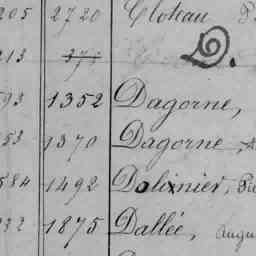 205 2720 Cloteau
D.
213
593 1352 Dagorne,
53 1370 Dagorne,
584 1492 Dolixnier,
232 1875 Dallée, Augu